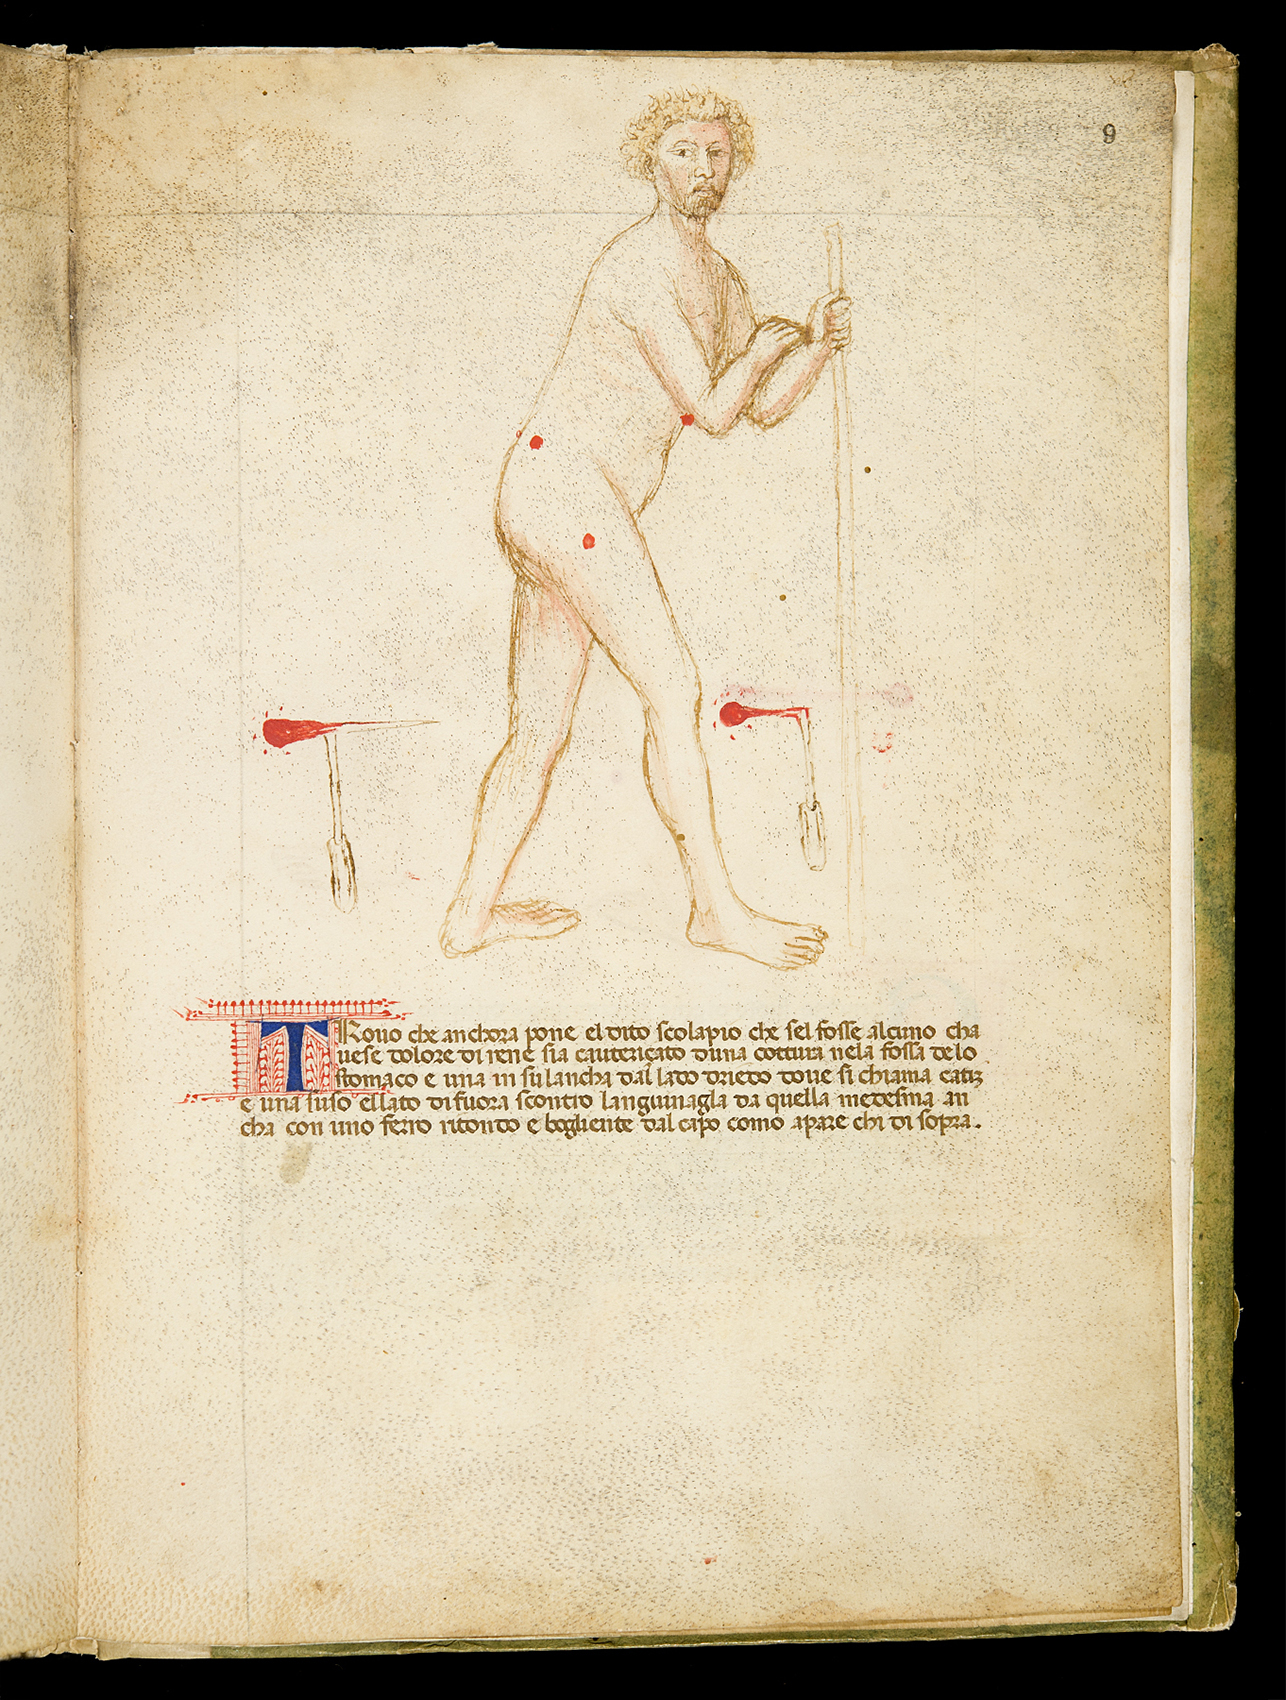 9
TRouo che anchora pone el dito scolapio che sel fosse alcuno cha
uese dolore di rene sia cautericato duna cottura nela fossa delo
stomaco e una in su lancha dal lato drieto doue si chiama catiz
e una suso ellato di fuora scontro languinaglia da quella medesma an
cha con uno ferro ritondo e bogliente dal capo como apare chi di sopra.